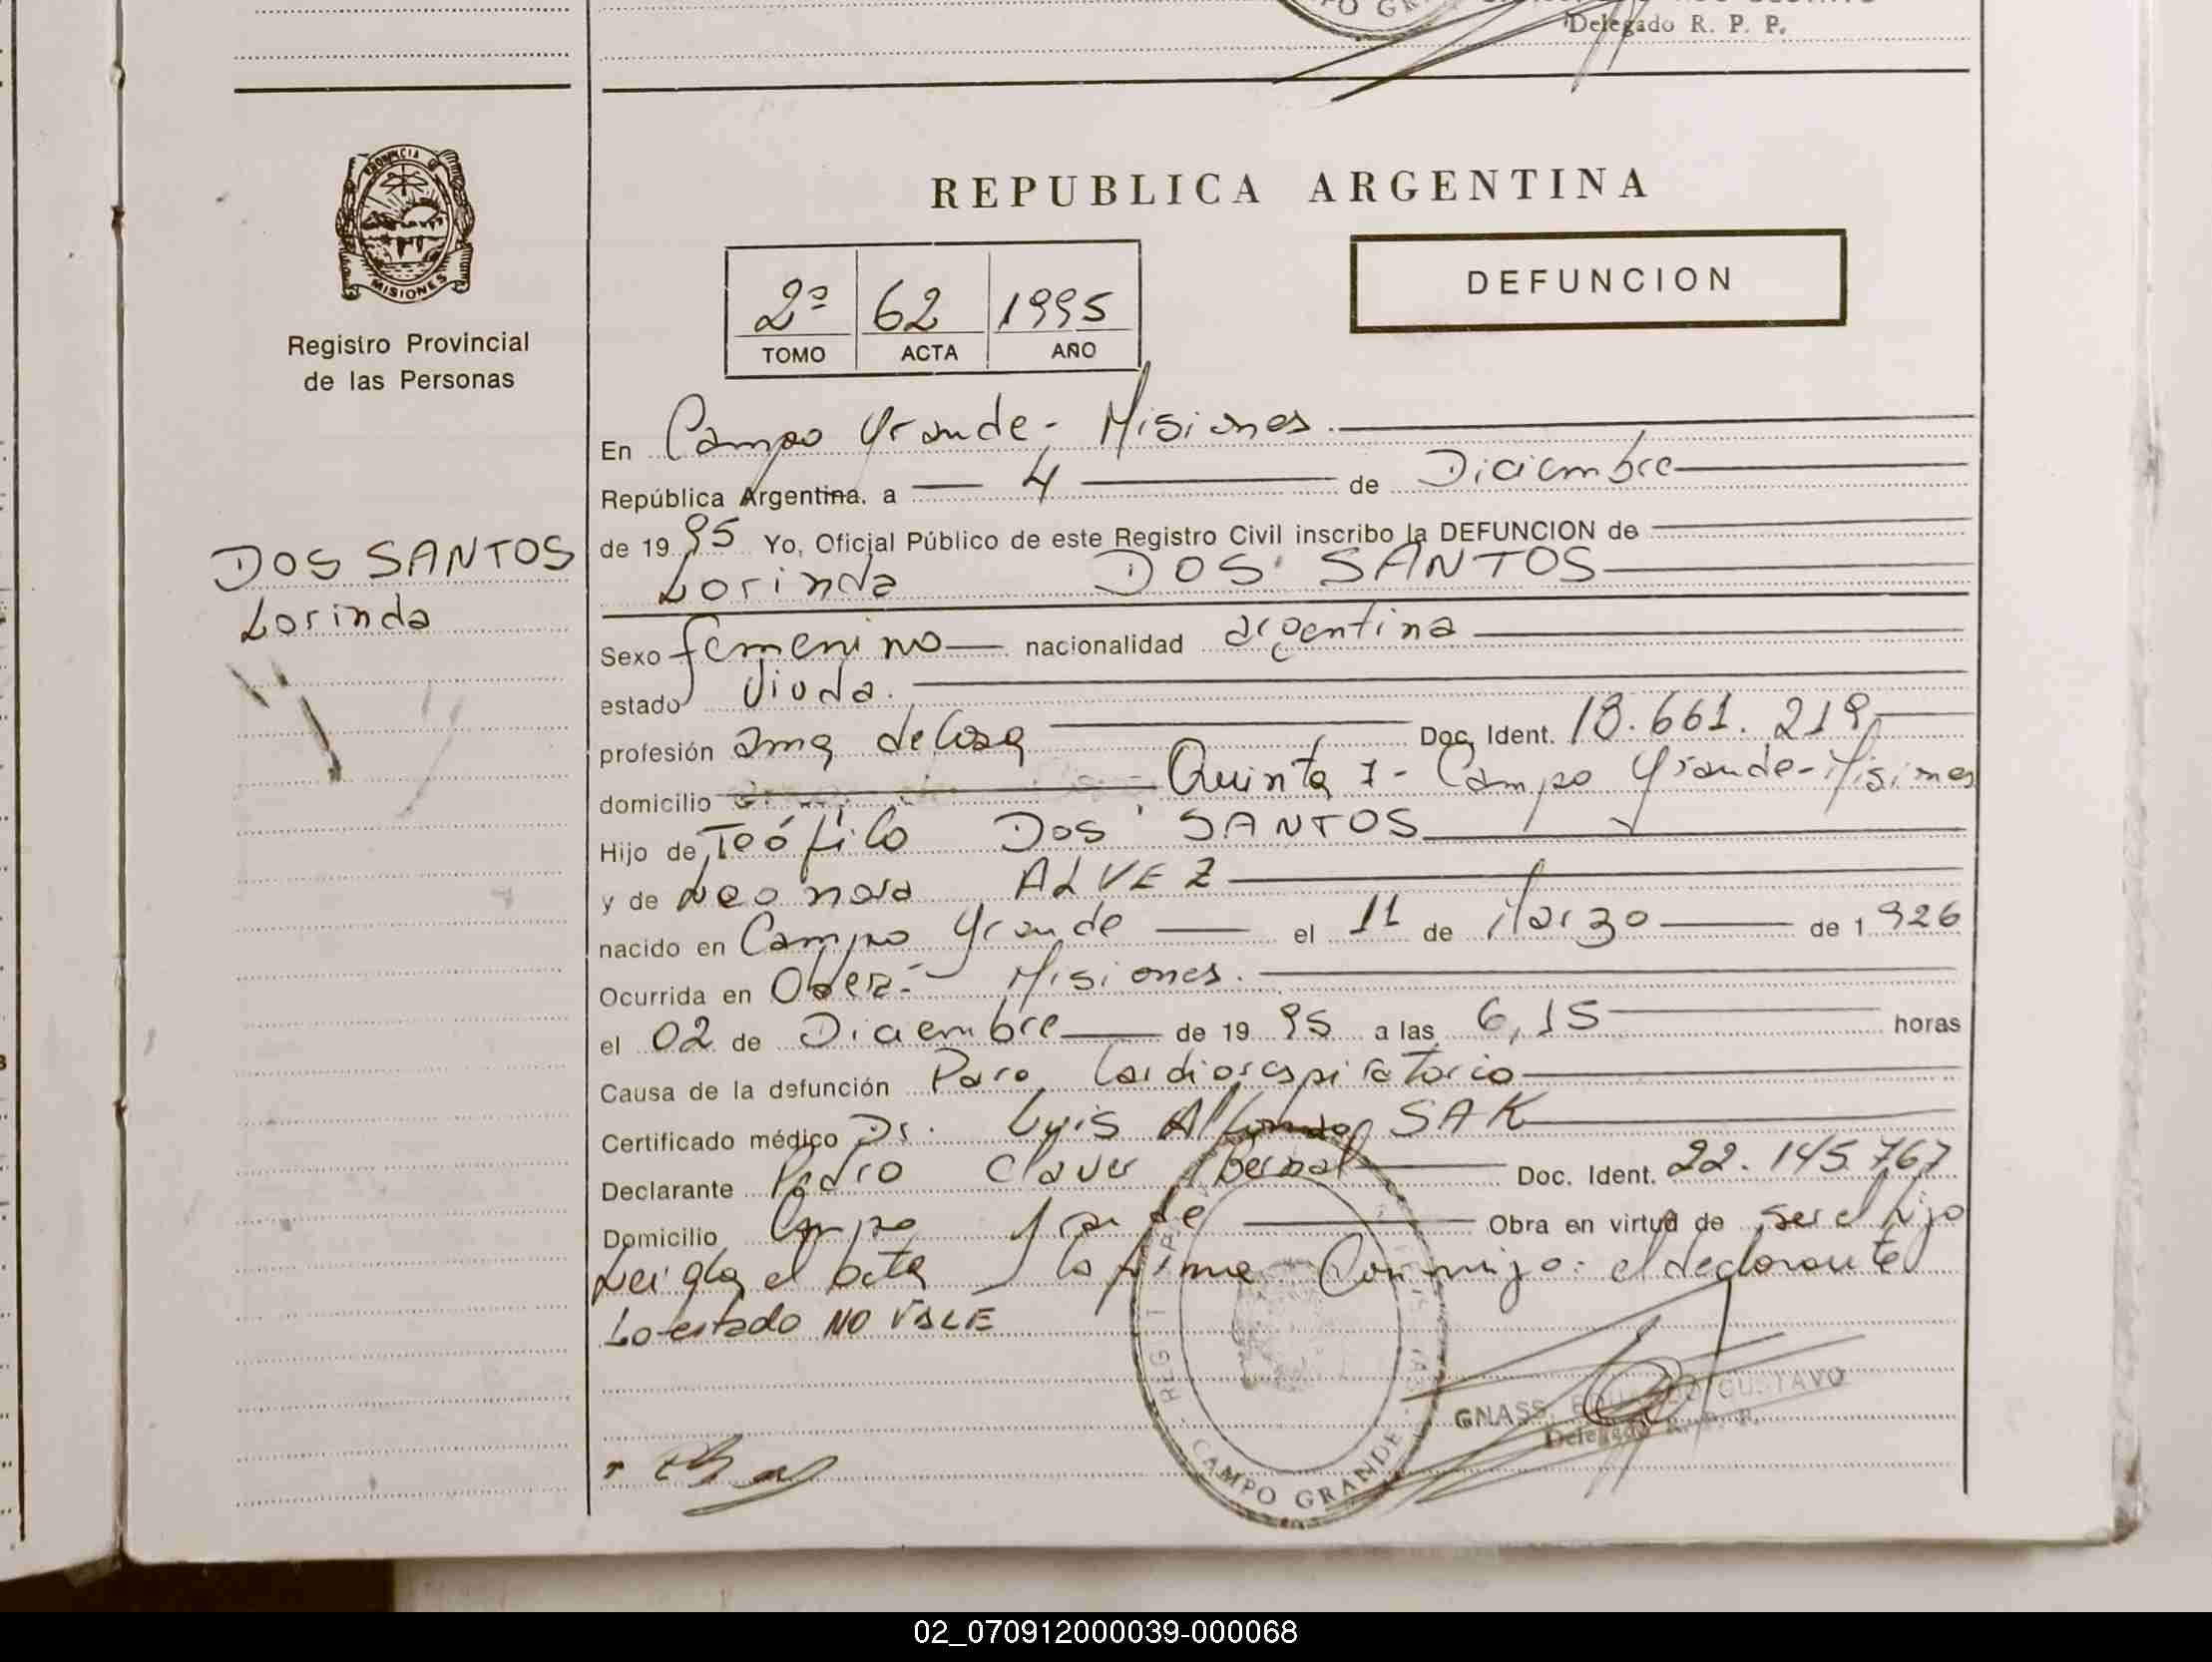 PO GR
Delegado R. P. P.
PROVINCIA DE
MISIONES
Registro Provincial
de las Personas
REPUBLICA ARGENTINA
DEFUNCION
2º 62 1995
TOMO ACTA AÑO
En Campo Grande - Misiones
República Argentina, a 4 de Diciembre
de 1995 Yo, Oficial Público de este Registro Civil inscribo la DEFUNCION de
Lorinda DOS SANTOS
DOS SANTOS
Lorinda
Sexo femenino nacionalidad argentina
estado Viuda.
profesión ama de Casa Doc. Ident. 18.661.219
domicilio Quinta 7 - Campo Grande - Misiones
Hijo de Teófilo DOS SANTOS
y de Leonora ALVEZ
nacido en Campo Grande el 11 de Marzo de 1926
Ocurrida en Oberá - Misiones.
el 02 de Diciembre de 1995 a las 6,15 horas
Causa de la defunción Paro Cardiorespiratorio
Certificado médico Dr. Luis SAK
Declarante Pedro Claver Bernal Doc. Ident. 22.145.767
Domicilio Campo Grande Obra en virtud de ser el hijo
Leida el acta la firma Conmigo: el declarante
Lo testado NO VALE
GNASS, EDUARDO GUSTAVO
Delegado R. P. P.
CAMPO GRANDE
02_070912000039-000068